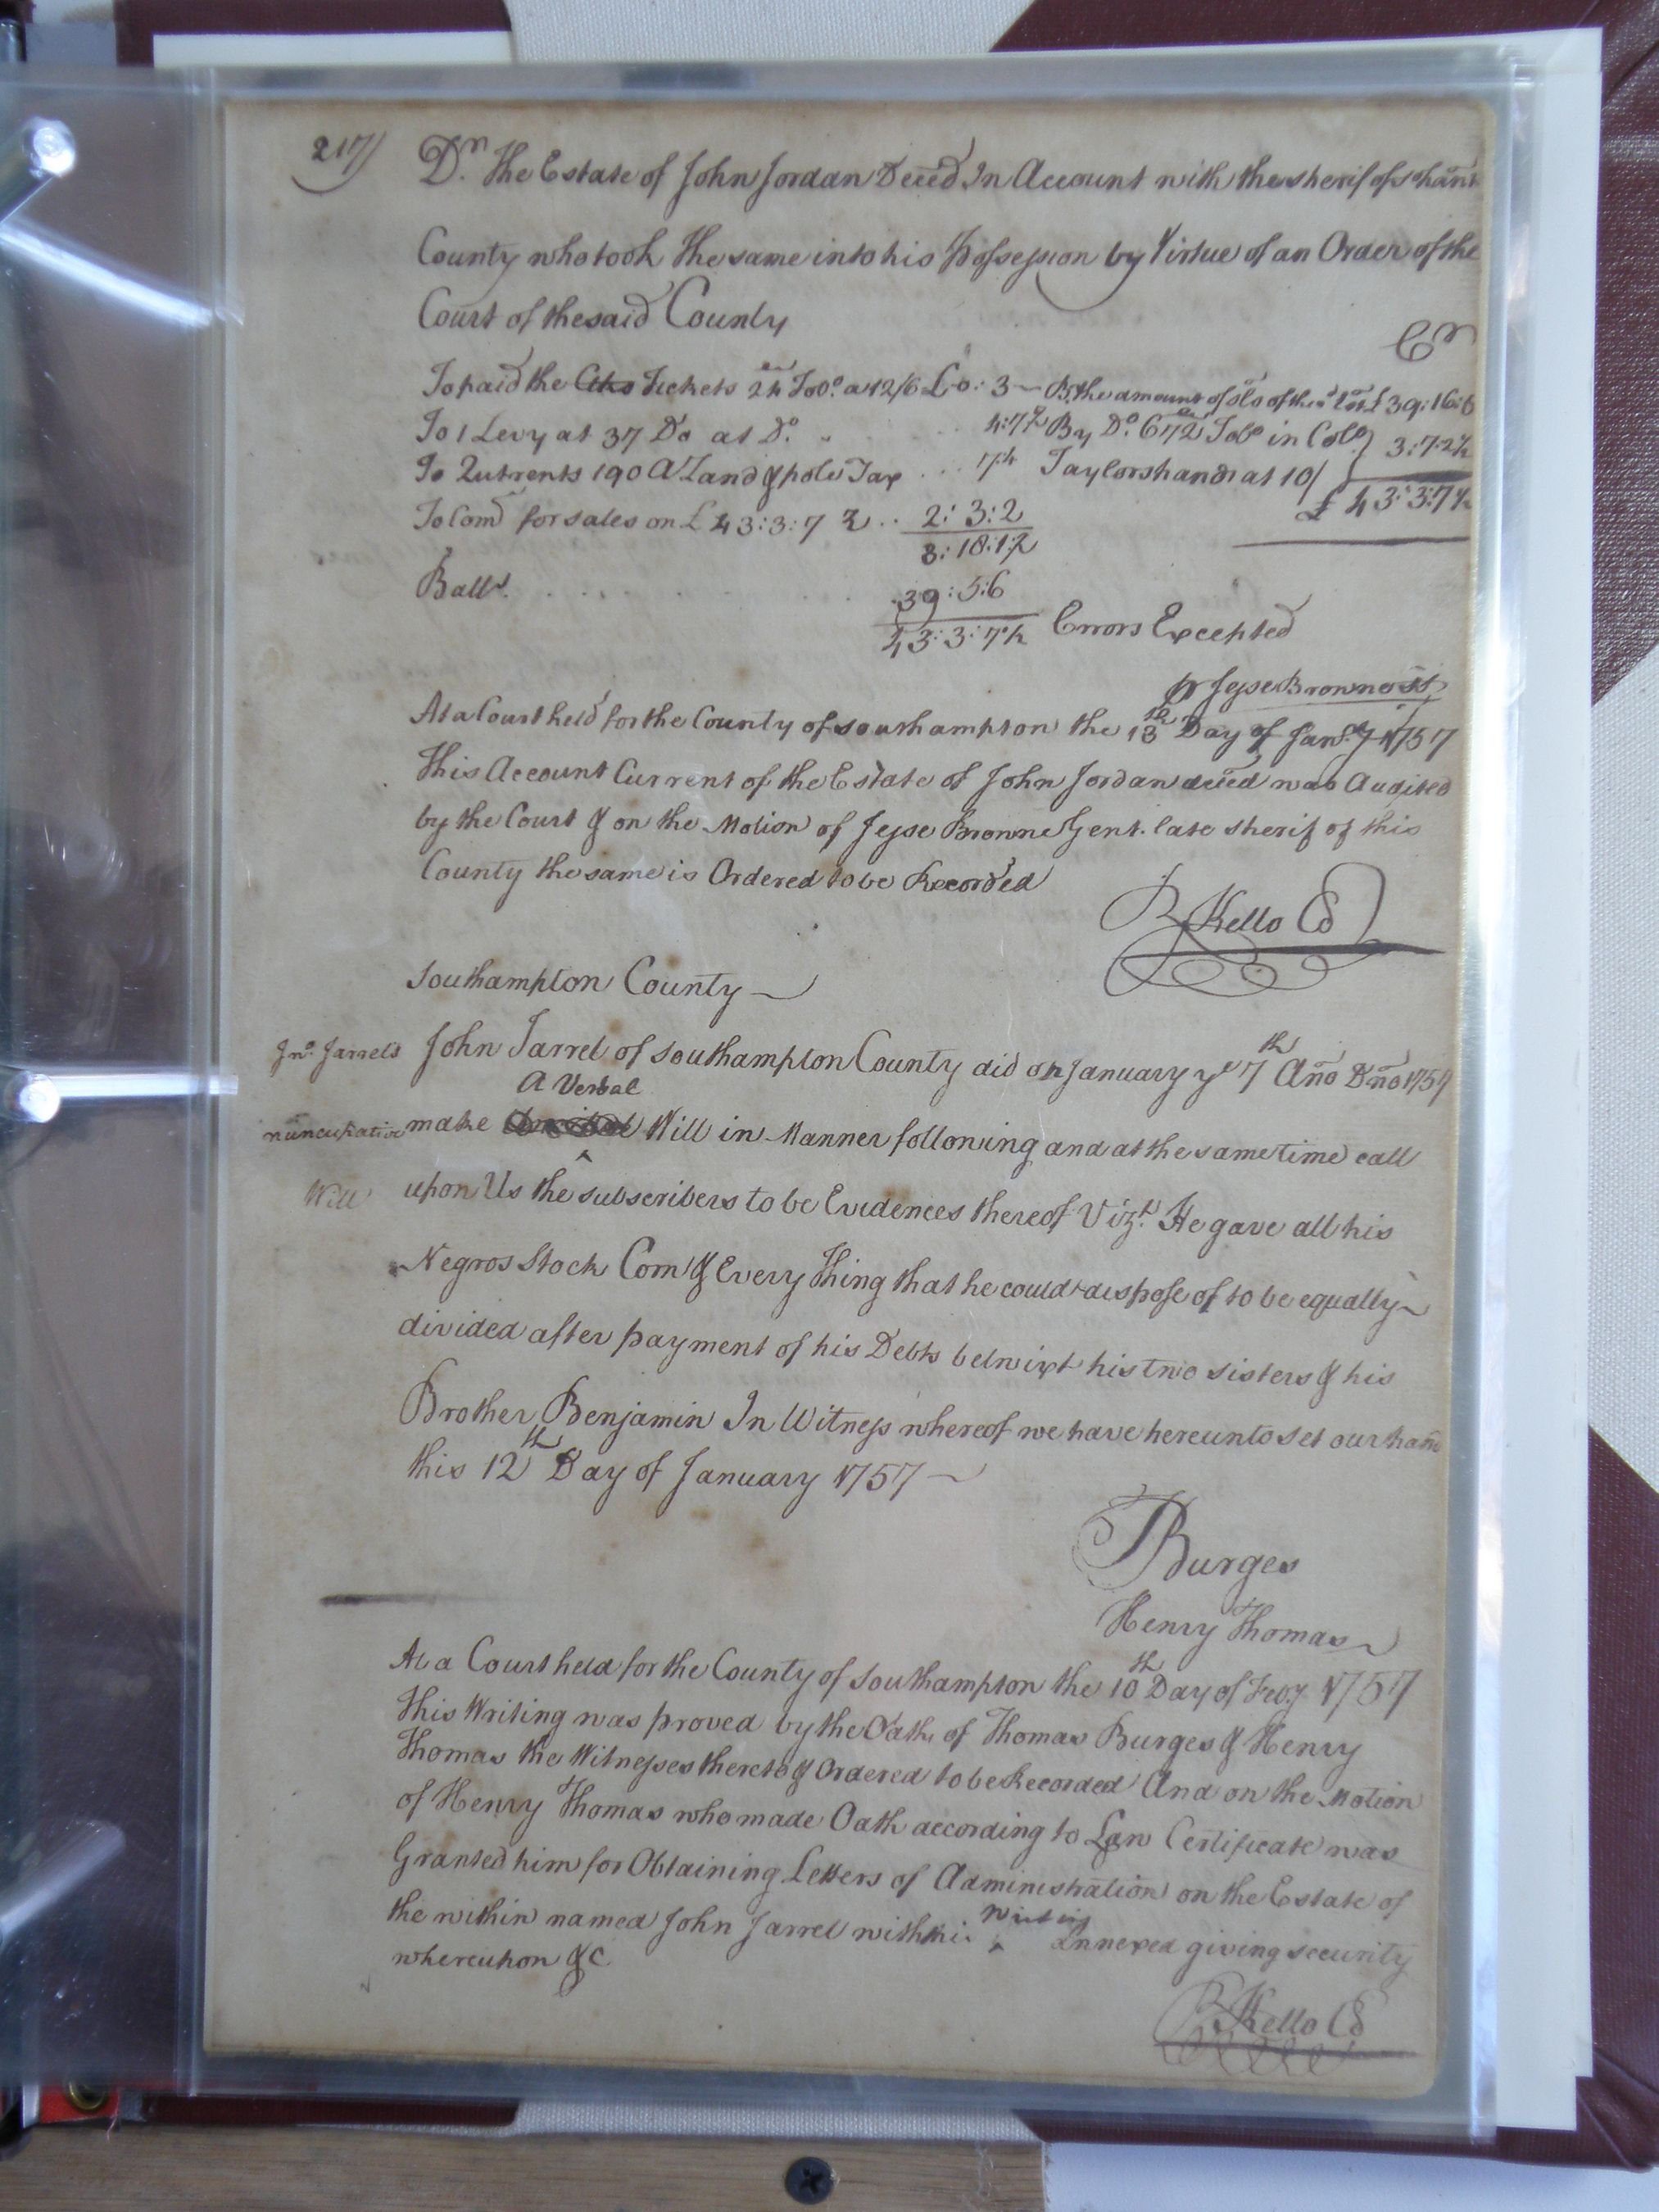 217)
Dr. The Estate of John Jordan Deced In Account with the sherif of
County who took the same into his Possession by Virtue of an Order of the
Court of the said County
Cr
To paid the Tickets 24 Tobo. a 12/6 £0:3— By the amount of of the £39:16:6
To 1 Levy at 37 Do at Do. 4:7½ By Do. 672 Tobo in Colo. } 3:7:2½
To Quitrents 190 A Land & pole Tax 7:4 Taylors hands at 10/
£43:3:7½
To Comd for sales on £43:3:7½ .. 2:3:2
3:18:1½
Balle. 39:5:6
43:3:7½ Errors Excepted
pr Jesse Browne
At a Court held for the County of Southampton the 13th Day of Jany. 1757
This Account Current of the Estate of John Jordan deced was Audited
by the Court & on the Motion of Jesse Browne Gent. late Sherif of this
County the same is Ordered to be Recorded
R Kello Cl
Southampton County
Jno. Jarrels
nuncupative
Will
John Jarrel of Southampton County did on January ye 7th Año Dño 1757
make A Verbal Will in Manner following and at the same time call
upon Us the subscribers to be Evidences thereof Vizt. He gave all his
Negros Stock Corn & Every Thing that he could dispose of to be equally
divided after payment of his Debts betwixt his two sisters & his
Brother Benjamin In Witness whereof we have hereunto set our hand
this 12th Day of January 1757
T Burges
Henry Thomas
At a Court held for the County of Southampton the 10th Day of Feby 1757
This Writing was proved by the Oath of Thomas Burges & Henry
Thomas the Witnesses thereto & Ordered to be Recorded And on the Motion
of Henry Thomas who made Oath according to Law Certificate was
Granted him for Obtaining Letters of Administration on the Estate of
the within named John Jarrel with this writing Annexed giving security
whereupon &c
R Kello Cl